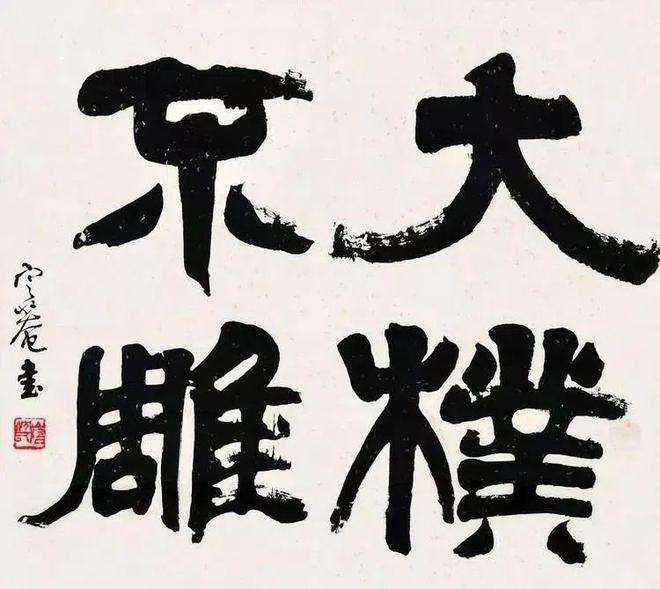 大樸
不雕
庵書